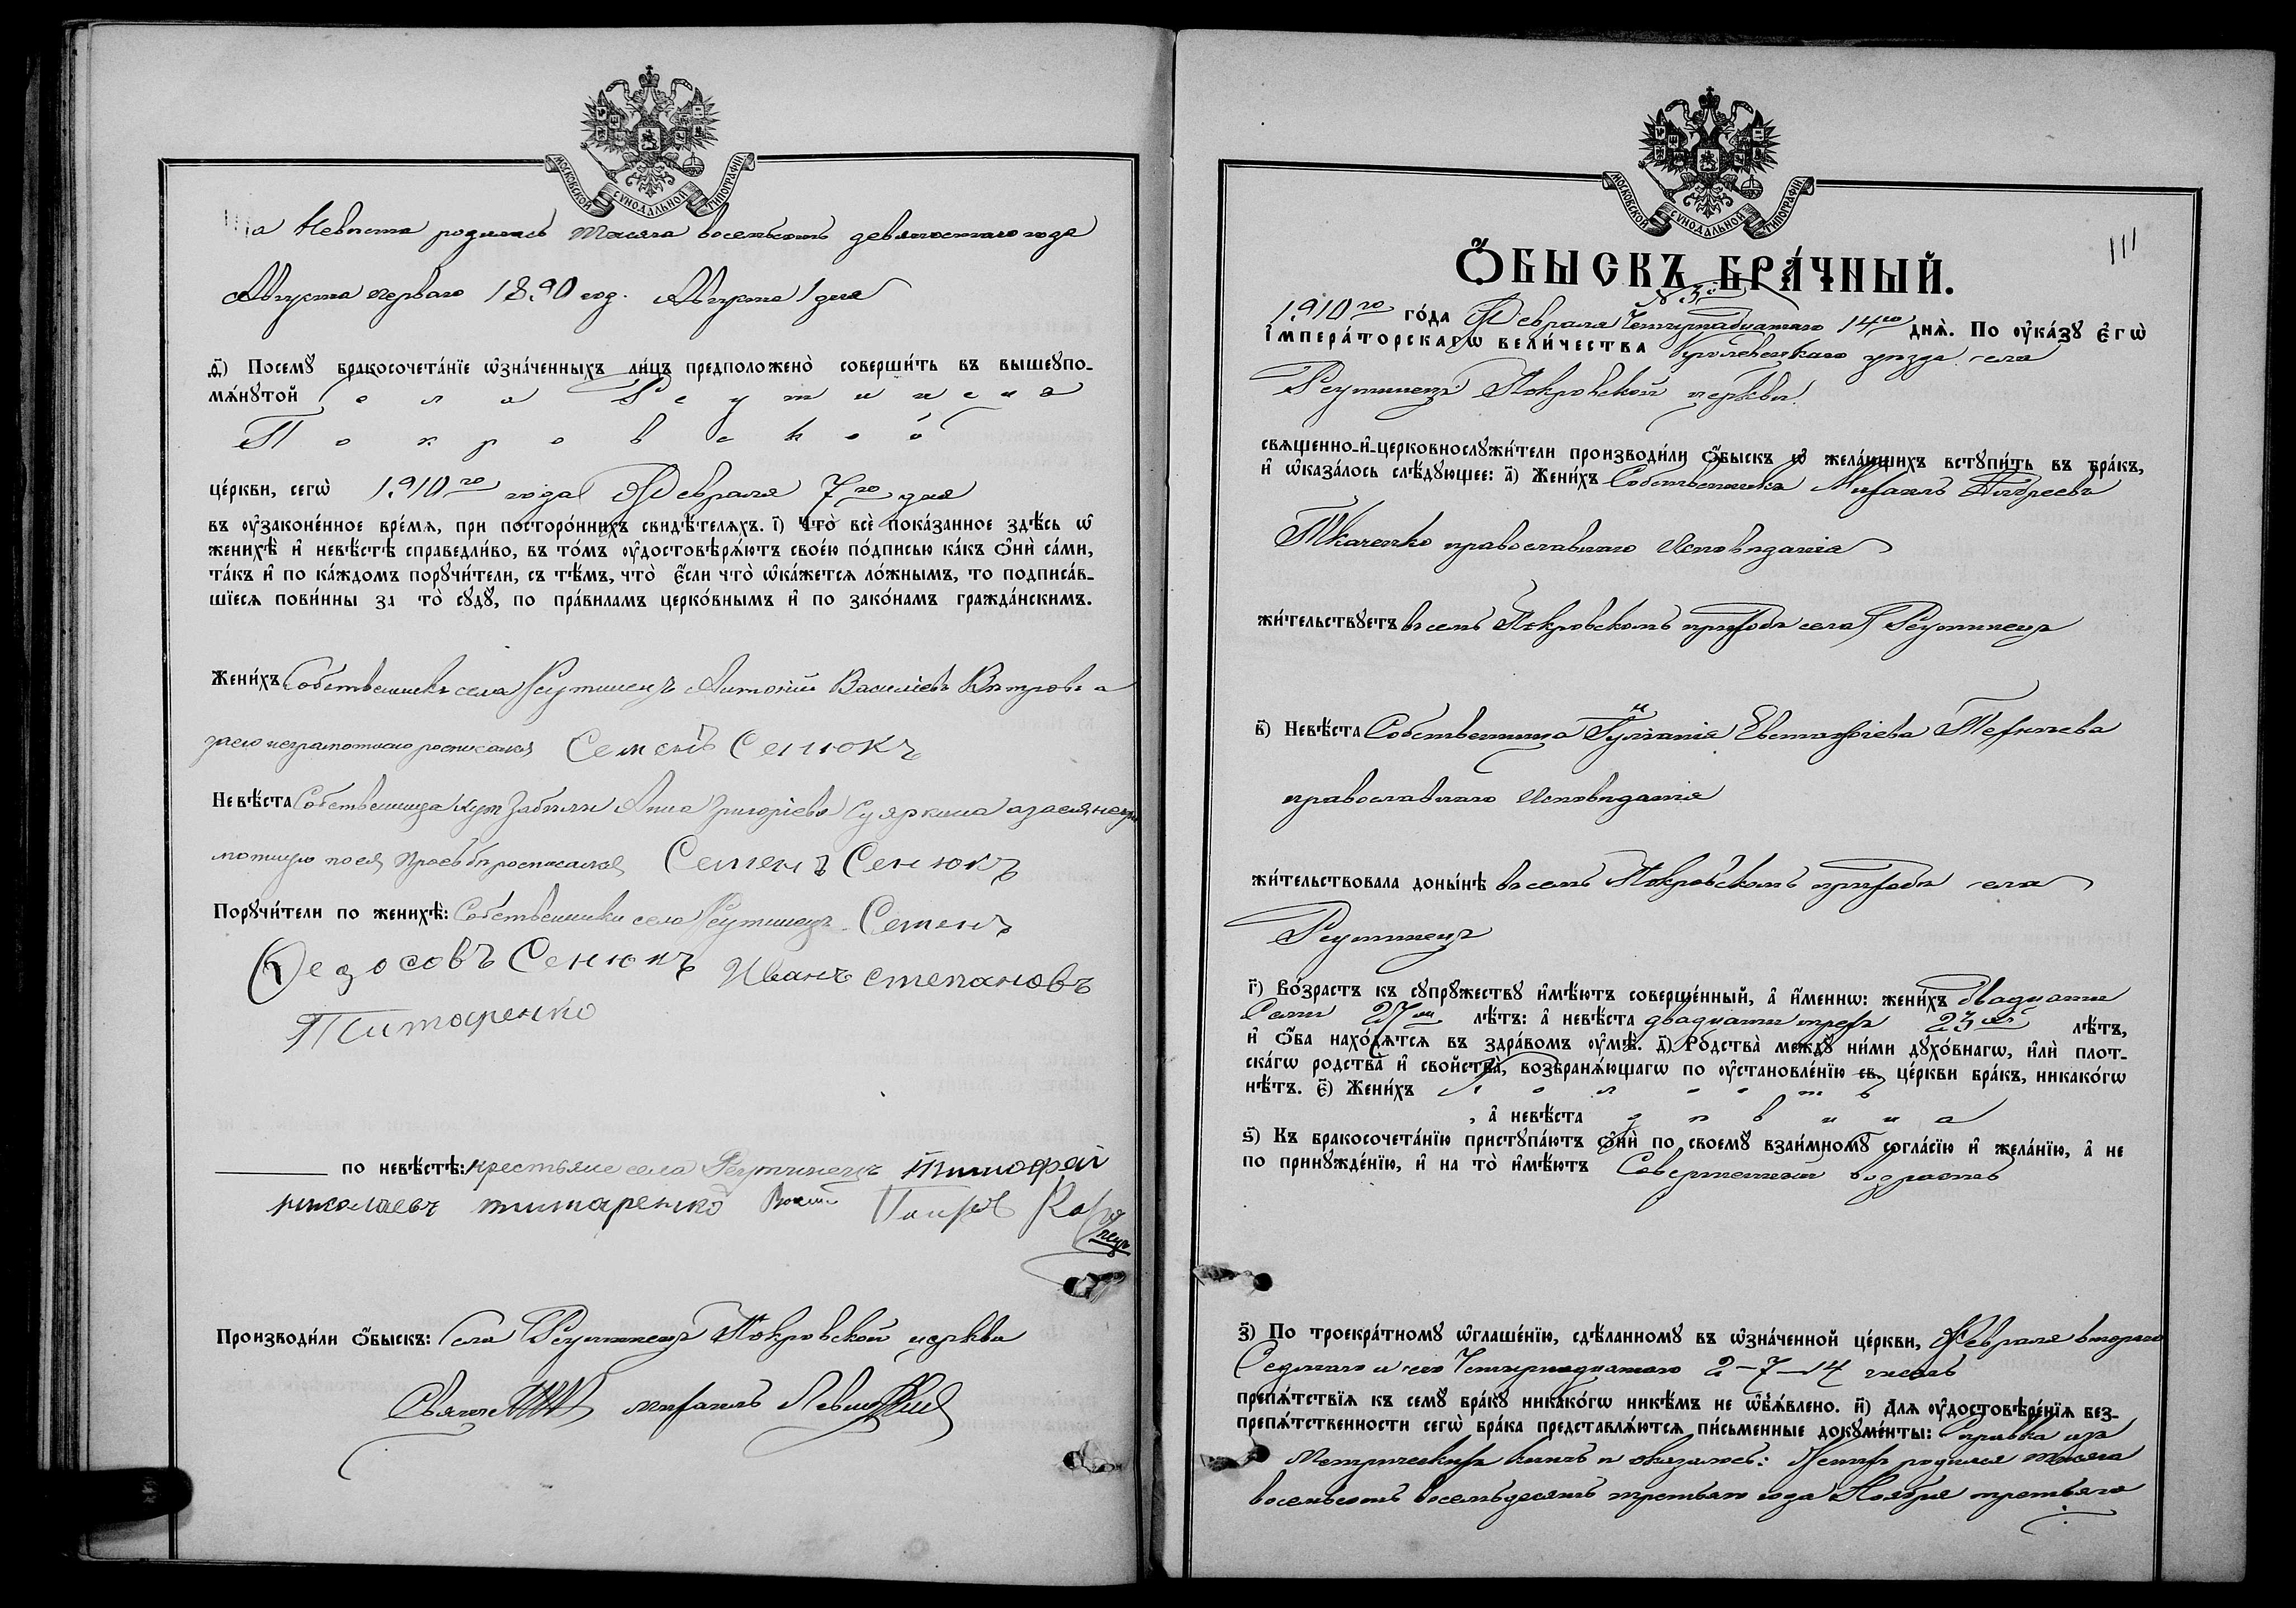 МОСКОВСКОЙ СУНОДАЛЬНОЙ ТИПОГРАФІИ
а Невѣста родилась Тысяча восемьсотъ девяностаго года
Августа перваго 1890 год. Августа 1 дня
ѳ҃) Посемꙋ̀ бракосочета́нїе ѡ҆зна́ченныхъ ли́цъ предположено̀ соверши́ть въ вышеупо-
мѧ́нꙋтой села Реутинецъ
Покровской
це́ркви, сегѡ̀ 1910го года Февраля 7го дня
въ ᲂу҆законе́нное вре́мѧ, при посторо́ннихъ свидѣ́телѧхъ. і҃) Что̀ всѐ пока́занное здѣ́сь ѡ҆
женихѣ̀ и҆ невѣ́стѣ справедли́во, въ то́мъ ᲂу҆достовѣрѧ́ютъ свое́ю по́дписью ка́къ ѻ҆нѝ са́ми,
та́къ и҆ по ка́ждомъ порꙋчи́тели, съ тѣ́мъ, что̀ є҆́сли что̀ ѡ҆ка́жетсѧ ло́жнымъ, то подписа́в-
шїесѧ пови́нны за то̀ сꙋдꙋ̀, по пра́виламъ церко́внымъ и҆ по зако́намъ гражда́нскимъ.
Жени́хъ Собственникъ села Реутинецъ Антоній Василіевъ Вѣтровъ а
за его неграмотного росписался Семенъ Сенюкъ
Невѣ́ста Собственница Анна Григоріева Суяркина а за ея негра
мотную по ея просьбѣ росписался Семенъ Сенюкъ
Порꙋчи́тели по женихѣ̀: Собственники села Реутинецъ Семенъ
Федосовъ Сенюкъ Иванъ Степановъ
Титаренко
по невѣ́стѣ: крестьяне села Реутинецъ Тимофей
николаевъ титаренко
Производи́ли ѻ҆́быскъ: Села Реутинецъ Покровской церкви
Священникъ Михаилъ Левицкій
МОСКОВСКОЙ СУНОДАЛЬНОЙ ТИПОГРАФІИ
111
Ѻ҆́БЫСКЪ БРА́ЧНЫЙ.
№ 3й
1910го го́да Февраля Четырнадцатаго 14го днѧ̀. По ᲂу҆ка́зꙋ Є҆гѡ̀
І҆мпера́торскагѡ вели́чества Кролевецкаго уѣзда села
Реутинецъ Покровской церкви
свѧщенно-и҆-церковнослꙋжи́тели производи́ли ѻ҆́быскъ ѡ҆ жела́ющихъ встꙋпи́ть въ бра́къ,
и҆ ѡ҆каза́лось слѣ́дꙋющее: а҃) Жени́хъ Собственникъ Михаилъ Андреевъ
Ткаченко православнаго исповѣданія
жи́тельствꙋетъ въ семъ Покровскомъ приходѣ села Реутинецъ
в҃) Невѣ́ста Собственница Гулianія Евстафіева
православнаго исповѣданія
жи́тельствовала доны́нѣ въ семъ Покровскомъ приходѣ села
Реутинецъ
г҃) Во́зрастъ къ сꙋпрꙋ́жествꙋ и҆мѣ́ютъ соверше́нный, а҆ и҆́меннѡ: жени́хъ двадцати
Семи 27ми лѣ́тъ: а҆ невѣ́ста двадцати трехъ 23хъ лѣ́тъ,
и҆ ѻ҆́ба нахо́дѧтсѧ въ здра́вомъ ᲂу҆мѣ̀. д҃) Родства̀ междꙋ̀ ни́ми дꙋхо́внагѡ, и҆лѝ плот-
ска́гѡ родства̀ и҆ свойства̀, возбранѧ́ющагѡ по ᲂу҆становле́нїю св. це́ркви бра́къ, никако́гѡ
нѣ́тъ. є҃) Жени́хъ холостъ
, а҆ невѣ́ста дѣвица
ѕ҃) Къ бракосочета́нїю пристꙋпа́ютъ ѻ҆нѝ по своемꙋ̀ взаи́мномꙋ согла́сїю и҆ жела́нїю, а҆ не
по принꙋжде́нїю, и҆ на то̀ и҆мѣ́ютъ Совершенный возрастъ
з҃) По троекра́тномꙋ ѡ҆глаше́нїю, сдѣ́ланномꙋ въ ѡ҆зна́ченной це́ркви, Февраля второго
Седмаго и сего Четырнадцатаго 2-7-14 числъ
препѧ́тствїѧ къ семꙋ̀ бра́кꙋ никако́гѡ никѣ́мъ не ѡ҆б̾ѧ́влено. и҃) Длѧ ᲂу҆достовѣре́нїѧ без-
препѧ́тственности сегѡ̀ бра́ка представлѧ́ютсѧ пи́сьменные докꙋме́нты: Справка изъ
Метрическихъ книгъ и оказалось: Женихъ родился Тысяча
восемьсотъ восемьдесятъ третьяго года Ноября третьяго